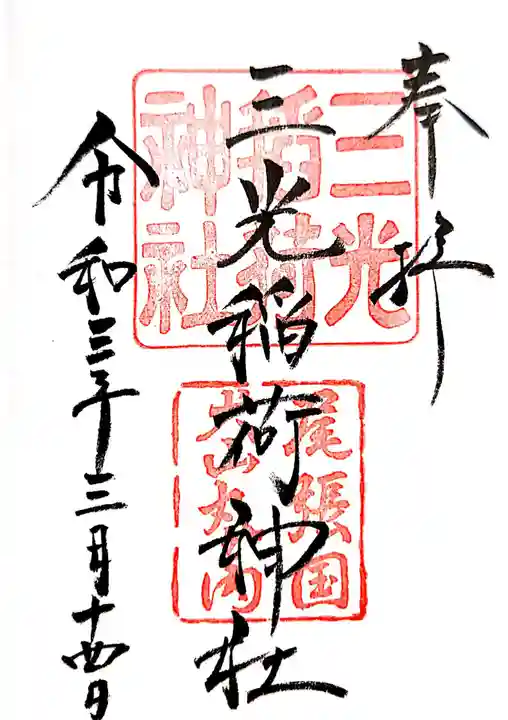 奉拝
三光稲荷神社
令和三年三月十四日
三光
稲荷
神社
尾張国
犬山丸の内